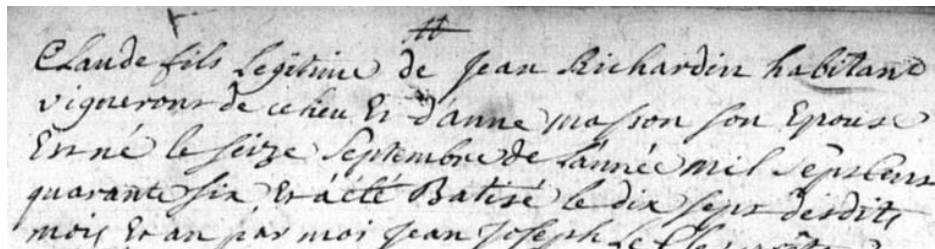 Claude fils Légitime de Jean Richardin habitant
vigneront de ce lieu Et d'anne masson son Epouse
Est né le seize Septembre de L'année mil sept Cent
quarante six Et a été Batisé le dix sept desdits
mois Et an par moi Jean Joseph